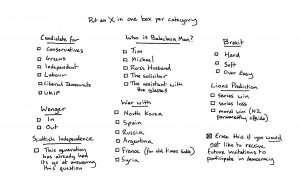 Put an X in one box per category
Candidate for
Conservatives
Greens
Independent
Labour
Liberal Democrats
UKIP
Wenger
In
Out
Scottish Independence
This generation
has already had
its go at answering
this question
Who is Balaclava Man?
Tim
Michael
Ros's Husband
The solicitor
The assistant with
the glasses
War with
North Korea
Spain
Russia
Argentina
France (for old times sake)
Syria
Brexit
Hard
Soft
Over Easy
Lions Prediction
series win
series loss
moral win (NZ
permanently offside)
Erase this if you would
not like to receive
future invitations to
participate in democracy